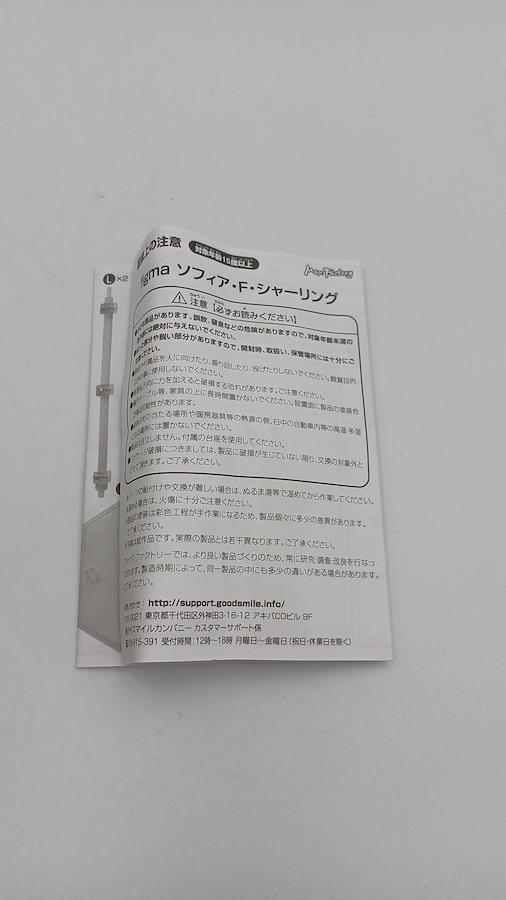 上の注意 対象年齢15歳以上
Max Factory
figma ソフィア・F・シャーリング
ちゅうい かなら よ
注意【必ずお読みください】
商品があります。誤飲、窒息などの危険がありますので、対象年齢未満の
には絶対に与えないでください。
部分や鋭い部分がありますので、開封時、取扱い、保管場所には十分にご
ください。
付属品を人に向けたり、振り回したり、投げたりしないでください。観賞目的
に使用しないでください。
方向に力を加えると破損する恐れがあります。ご注意ください。
テーブル等、家具の上に長時間置かないでください。設置面に製品の塗装色
可能性があります。
の当たる場所や暖房器具等の熱源の側、日中の自動車内等の高温・多湿
場所には置かないでください。
自立しません。付属の台座を使用してください。
ージ破損につきましては、製品に破損が生じていない限り、交換の対象外と
て頂きます。ご了承ください。
パーツの組付けや交換が難しい場合は、ぬるま湯等で温めてから作業してください。
温める場合は、火傷に十分ご注意ください。
製品の塗装は彩色工程が手作業になるため、製品個々に多少の差異があります。
ご了承ください。
写真は試作品です。実際の製品とは若干異なります。ご了承ください。
マックスファクトリーでは、より良い製品づくりのため、常に研究・調査・改良を行なっ
ております。製造時期によって、同一製品の中にも多少の違いがある場合があります。
ご了承ください。
問い合わせ： http://support.goodsmile.info/
-0021 東京都千代田区外神田3-16-12 アキバCOビル 9F
グッドスマイルカンパニー カスタマーサポート係
-915-391 受付時間：12時〜18時 月曜日〜金曜日（祝日・休業日を除く）
L ×2